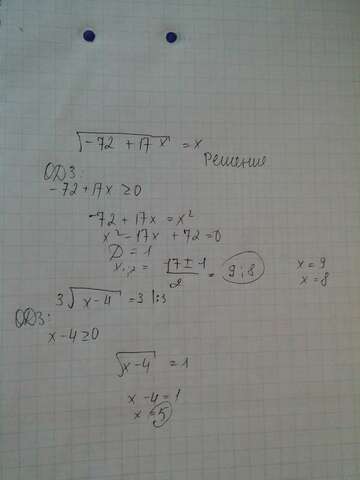 √(-72 + 17x) = x
Решение
ОДЗ:
-72+17x ≥0
-72+17x = x²
x² -17x +72=0
D = 1
x₁,₂ = (17 ± 1)/2 = 9 ; 8
x = 9
x = 8
3√(x-4) = 3 |:3
ОДЗ:
x-4≥0
√(x-4) = 1
x -4 = 1
x = 5